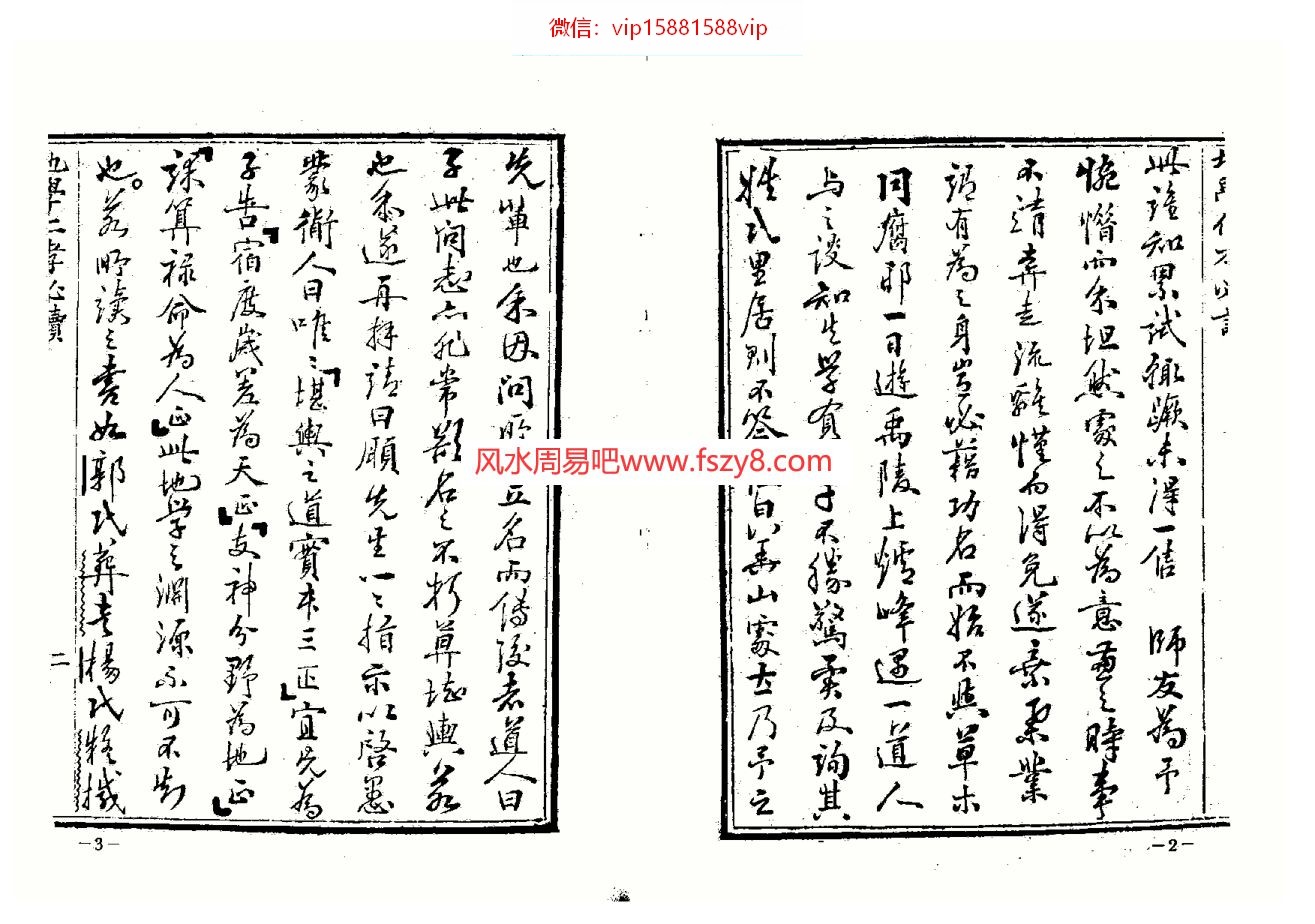 微信：vip15881588vip
此誰知累試輒蹶未得一售 師友為予
惋惜而余坦然處之不以為意 之時事
不靖奔走流離 而得免遂棄 業
謂有為之身豈必藉功名而始不與草木
同腐耶一日遊禹陵上爐峰遇一道人
与之談知先學有 子不勝驚異及詢其
姓氏里居則不答 山處士乃予之
風水周易吧www.fszy8.com
-2-
先輩也余因問 立名而傳後者道人曰
子此問志亦非常 名之不朽 堪輿若
也余遂再拜請曰願先生一々指示以啓愚
蒙道人曰唯々堪輿之道實本三正宜先為
子告宿度歲差為天正支神分野為地正
祿命為人正此地學之淵源不可不知
也若時讀之書如郭氏葬書楊氏
地學二 必讀
二
-3-